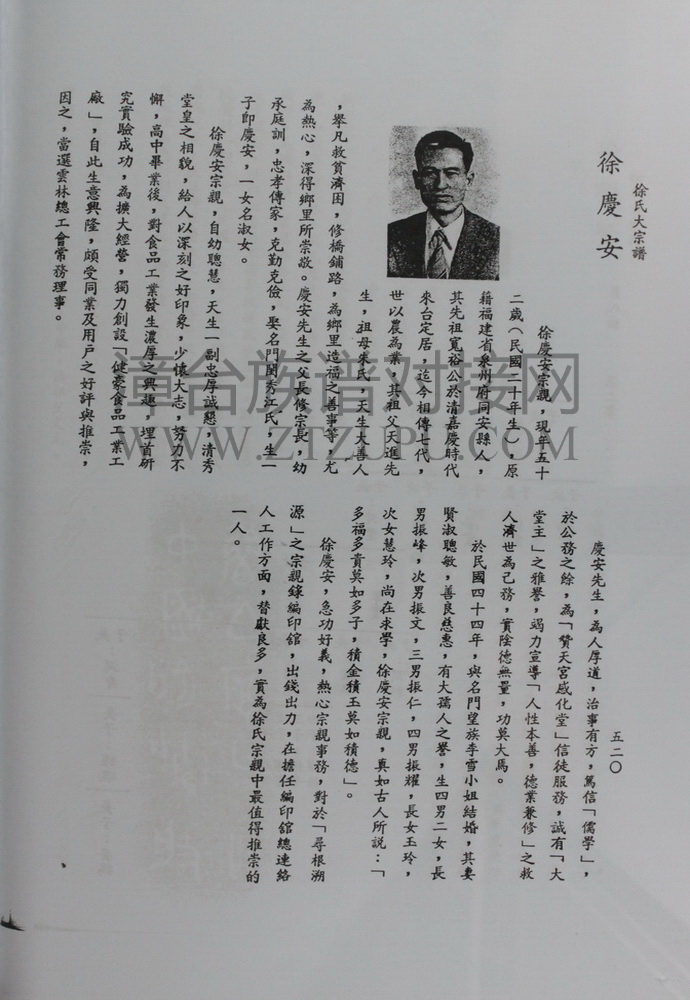 徐氏大宗譜
徐慶安
徐慶安宗親，現年五十
二歲（民國二十年生），原
籍福建省泉州府同安縣人，
其先祖寬裕公於清嘉慶時代
來台定居，迄今相傳七代，
世以農為業，其祖父天進先
生，祖母朱氏，天生大善人
，舉凡救貧濟困，修橋鋪路，為鄉里造福之善事等，尤
為熱心，深得鄉里所崇敬。慶安先生之父長修宗長，幼
承庭訓，忠孝傳家，克勤克儉，娶名門閨秀江氏，生一
子即慶安，一女名淑女。
徐慶安宗親，自幼聰慧，天生一副忠厚誠懇，清秀
堂皇之相貌，給人以深刻之好印象，少懷大志，努力不
懈，高中畢業後，對食品工業發生濃厚之興趣，埋首研
究實驗成功，為擴大經營，獨力創設「健豪食品工業工
廠」，自此生意興隆，頗受同業及用戶之好評與推崇，
因之，當選雲林總工會常務理事。
五二〇
慶安先生，為人厚道，治事有方，篤信「儒學」，
於公務之餘，為「贊天宮感化堂」信徒服務，誠有「大
堂主」之雅譽，竭力宣導「人性本善，德業兼修」之救
人濟世為己務，實陰德無量，功莫大焉。
於民國四十四年，與名門望族李雪小姐結婚，其妻
賢淑聰敏，善良慈惠，有大孺人之譽，生四男二女，長
男振峰，次男振文，三男振仁，四男振耀，長女玉玲，
次女慧玲，尚在求學，徐慶安宗親，真如古人所說：「
多福多貴莫如多子，積金積玉莫如積德」。
徐慶安，急功好義，熱心宗親事務，對於「尋根溯
源」之宗親錄編印舘，出錢出力，在擔任編印舘總連絡
人工作方面，替獻良多，實為徐氏宗親中最值得推崇的
一人。
漳台族谱对接网
WWW.ZTZUPU.COM